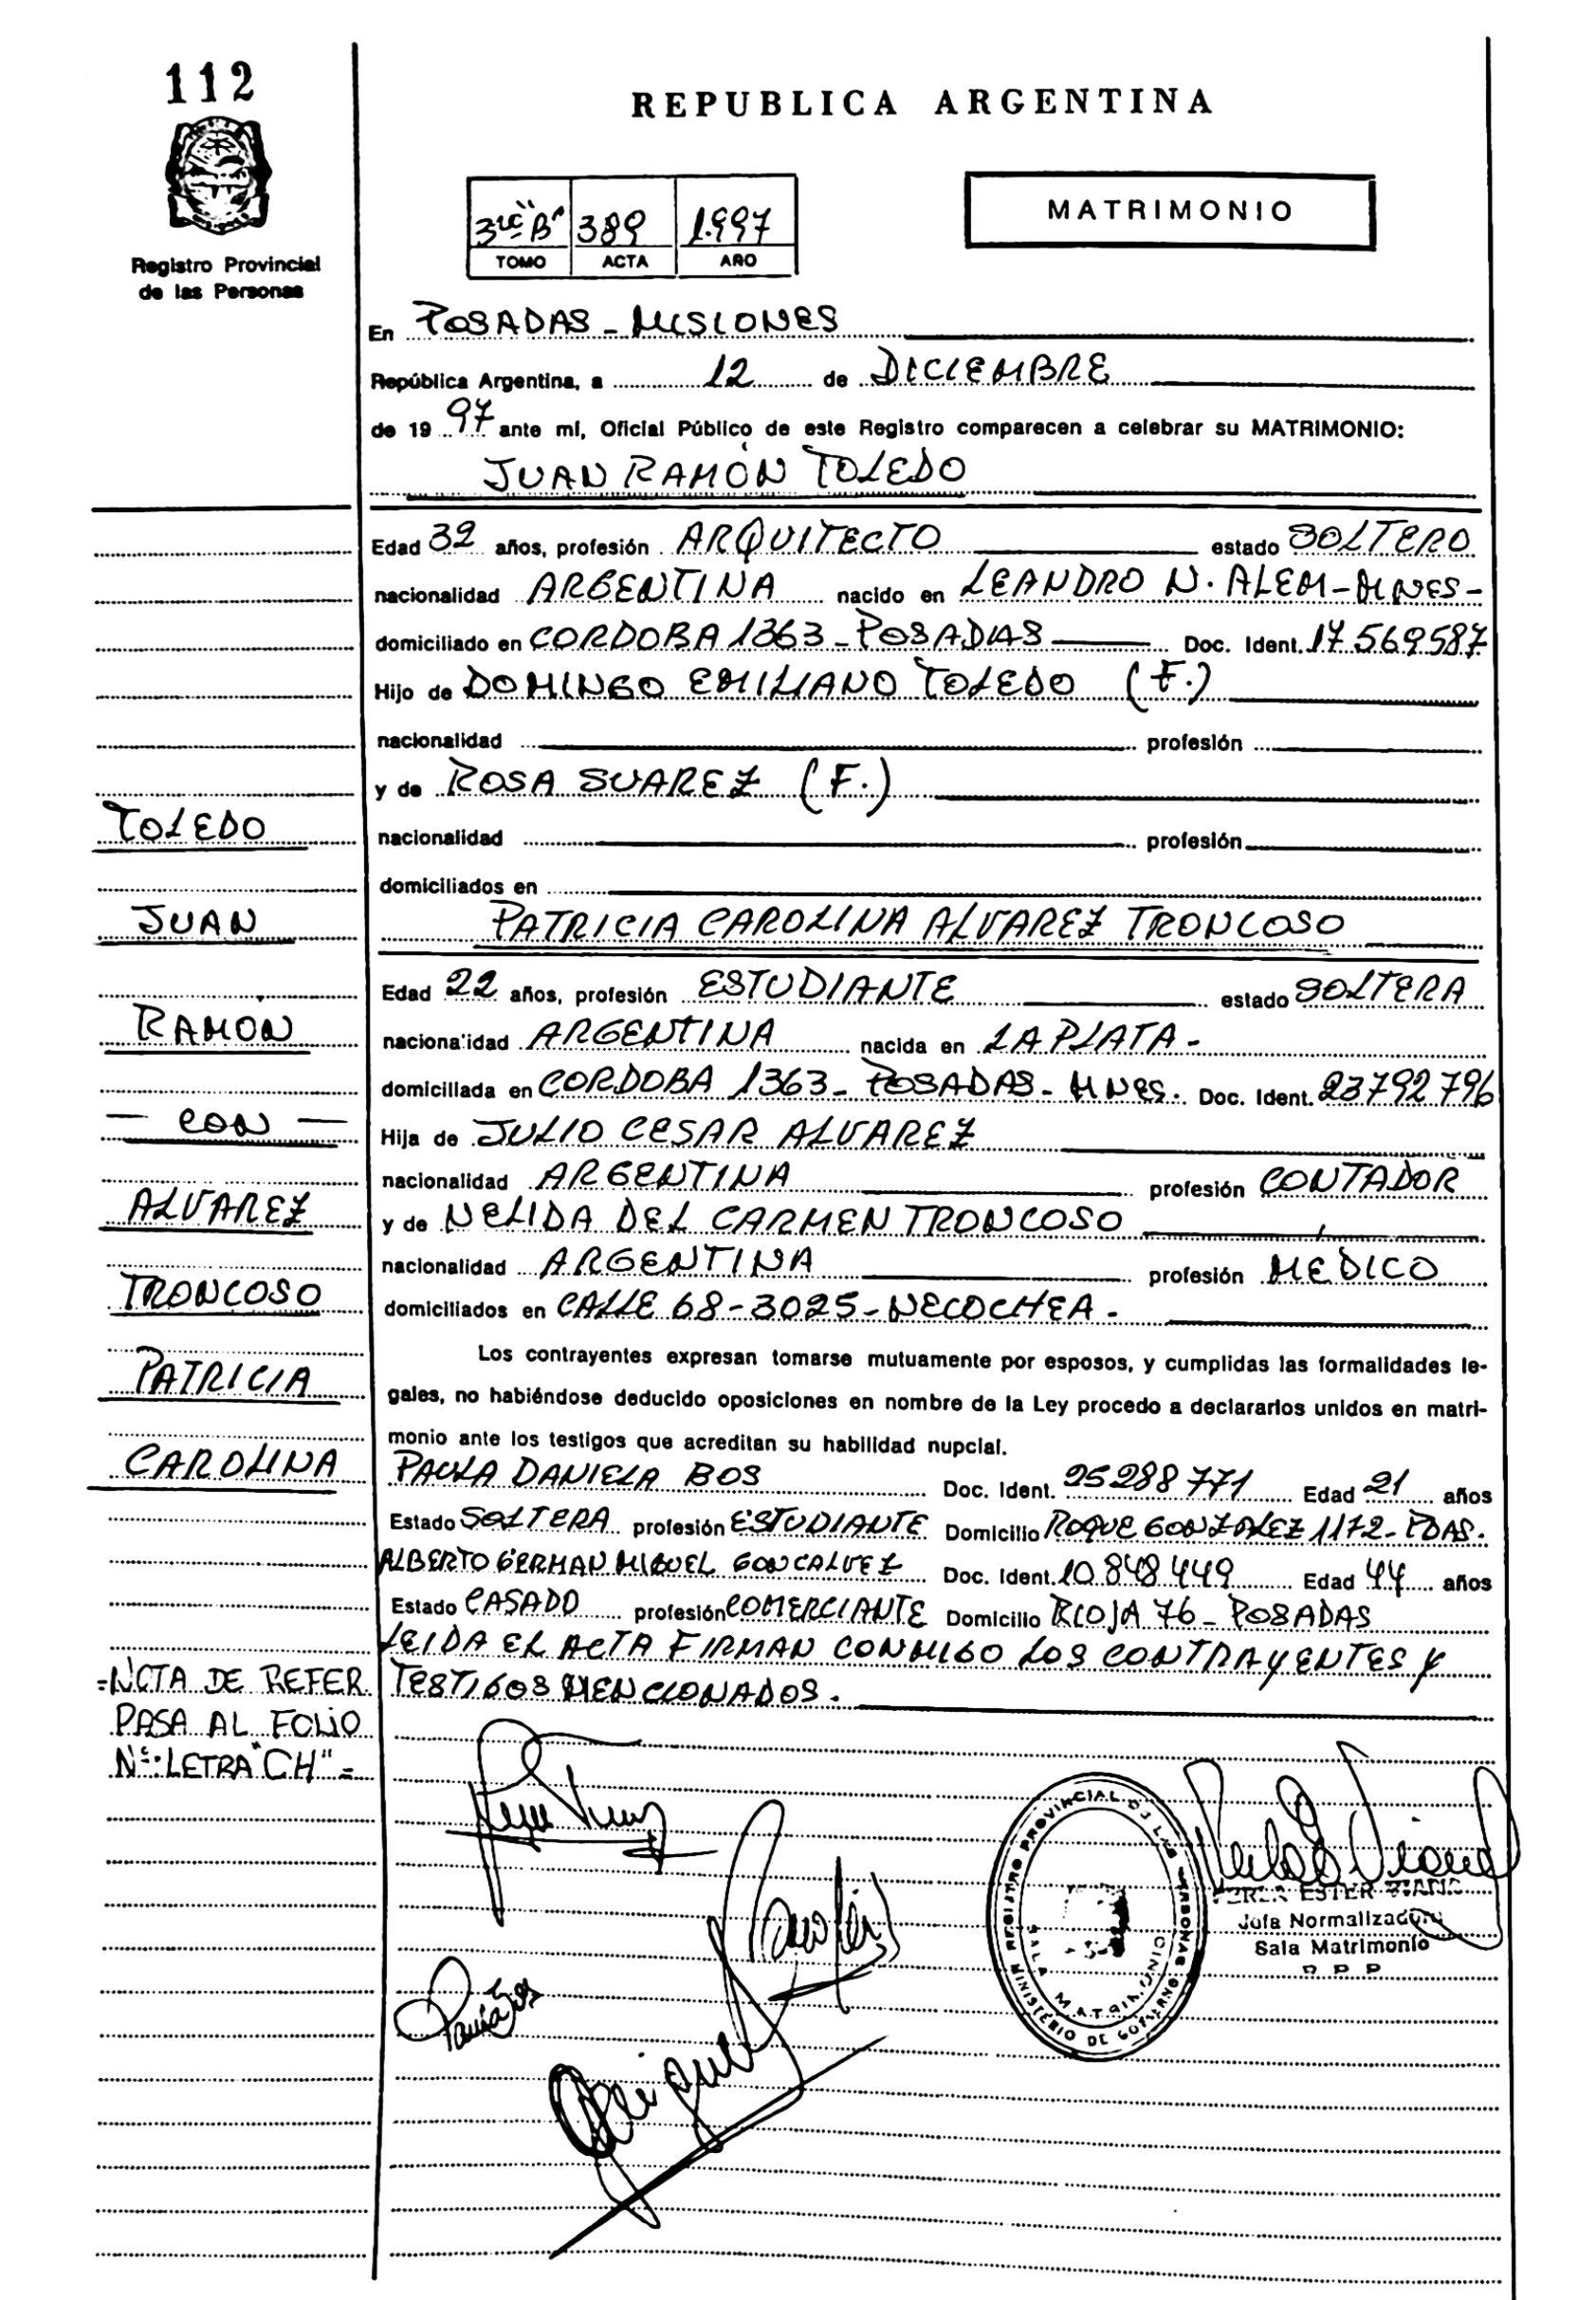 112
REPUBLICA ARGENTINA
3ro "B" 389 1.997
TOMO ACTA AÑO
MATRIMONIO
Registro Provincial
de las Personas
En POSADAS - MISIONES
República Argentina, a 12 de DICIEMBRE
de 19 97 ante mí, Oficial Público de este Registro comparecen a celebrar su MATRIMONIO:
JUAN RAMÓN TOLEDO
Edad 32 años, profesión ARQUITECTO estado SOLTERO
nacionalidad ARGENTINA nacido en LEANDRO N. ALEM - MNES -
domiciliado en CORDOBA 1363 - POSADAS Doc. Ident. 17.569587
Hijo de DOMINGO EMILIANO TOLEDO (F.)
nacionalidad profesión
y de ROSA SUAREZ (F.)
nacionalidad profesión
domiciliados en
PATRICIA CAROLINA ALVAREZ TRONCOSO
Edad 22 años, profesión ESTUDIANTE estado SOLTERA
nacionalidad ARGENTINA nacida en LA PLATA -
domiciliada en CORDOBA 1363 - POSADAS - MNES. Doc. Ident. 23792796
Hija de JULIO CESAR ALVAREZ
nacionalidad ARGENTINA profesión CONTADOR
y de NELIDA DEL CARMEN TRONCOSO
nacionalidad ARGENTINA profesión MÉDICO
domiciliados en CALLE 68 - 3025 - NECOCHEA -
Los contrayentes expresan tomarse mutuamente por esposos, y cumplidas las formalidades le-
gales, no habiéndose deducido oposiciones en nombre de la Ley procedo a declararlos unidos en matri-
monio ante los testigos que acreditan su habilidad nupcial.
PAULA DANIELA BOS Doc. Ident. 25288771 Edad 21 años
Estado SOLTERA profesión ESTUDIANTE Domicilio ROQUE GONZALEZ 1172 - PDAS.
ALBERTO GERMAN MIGUEL GONCALVEZ Doc. Ident. 10.848.449 Edad 44 años
Estado CASADO profesión COMERCIANTE Domicilio RIOJA 76 - POSADAS
LEIDA EL ACTA FIRMAN CONMIGO LOS CONTRAYENTES Y
TESTIGOS MENCIONADOS.
TOLEDO
JUAN
RAMON
- CON -
ALVAREZ
TRONCOSO
PATRICIA
CAROLINA
=NOTA DE REFER.
PASA AL FOLIO
Nº LETRA "CH" =
REGISTRO PROVINCIAL DE LAS PERSONAS
MINISTERIO DE GOBIERNO
SALA MATRIMONIO
ESTER
Jefa Normalizadora
Sala Matrimonio